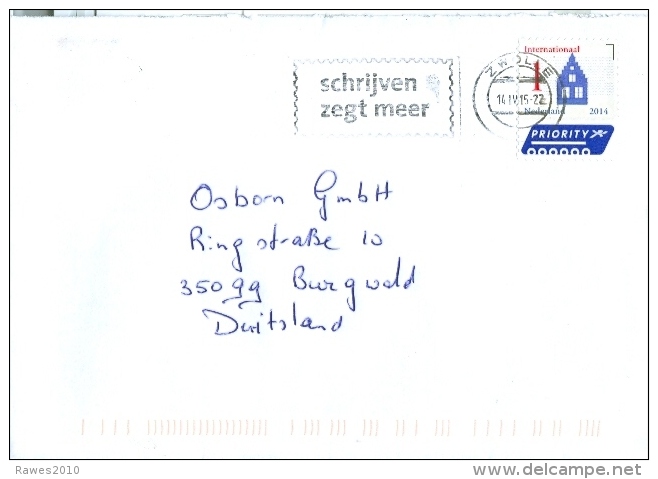 Internationaal
1
Nederland 2014
PRIORITY
ZWOLLE
14.IV.15-22
schrijven
zegt meer
Osborn GmbH
Ringstraße 10
35099 Burgwald
Duitsland
Rawes2010
www.delcampe.net